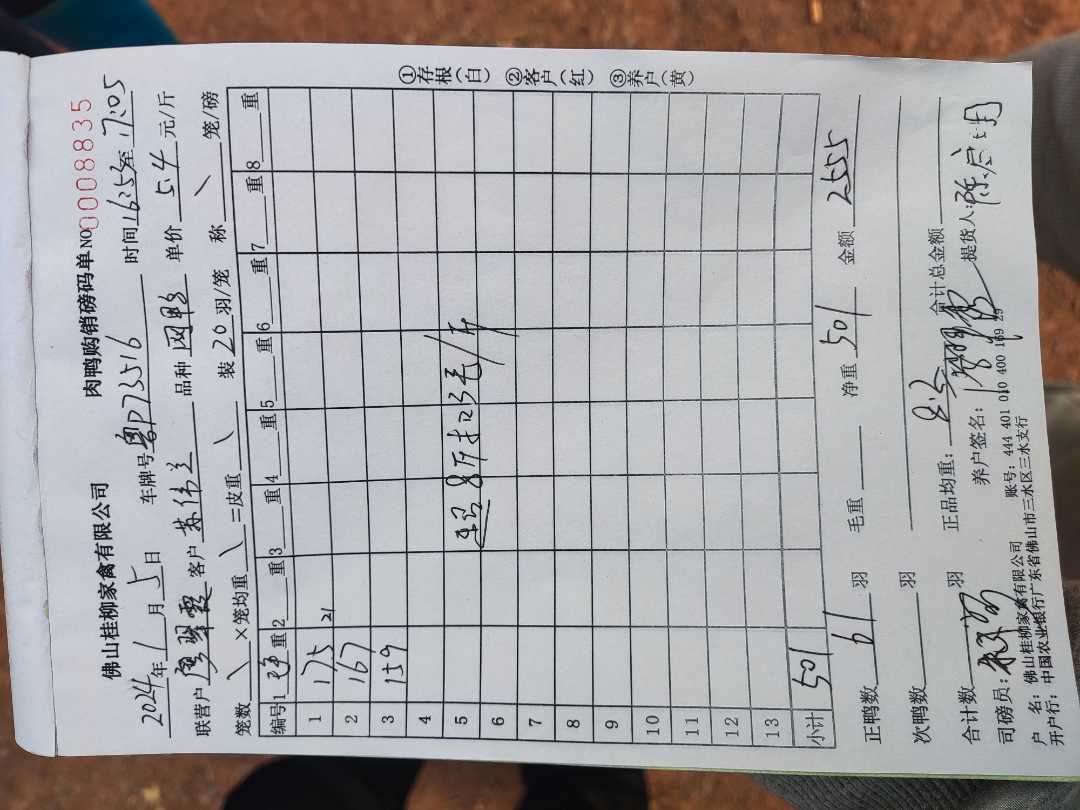 佛山桂柳家禽有限公司 肉鸭购销磅码单 NO 0008835
2024年1月5日 车牌号粤P73516 时间16:53至17:05
联营户廖翠霞 客户苏伟兰 品种 网鸭 单价 5.4 元/斤
笼数 \ ×笼均重 \ =皮重 \ 装 20 羽/笼 称 \ 笼/磅
编号 1 净重 2 重 3 重 4 重 5 重 6 重 7 重 8 重
1 175 21
2 167
3 159
4
5
6
超8斤扣3毛/斤
7
8
9
10
11
12
13
小计 501
正鸭数 61 羽 毛重 净重 501 金额 2555
次鸭数 羽
合计数 羽 正品均重: 8.2 合计总金额
司磅员: 养户签名: 廖翠霞 提货人:
户 名: 佛山桂柳家禽有限公司 账号: 444 401 010 400 169 29
开户行: 中国农业银行广东省佛山市三水区三水支行
①存根(白) ②客户(红) ③养户(黄)